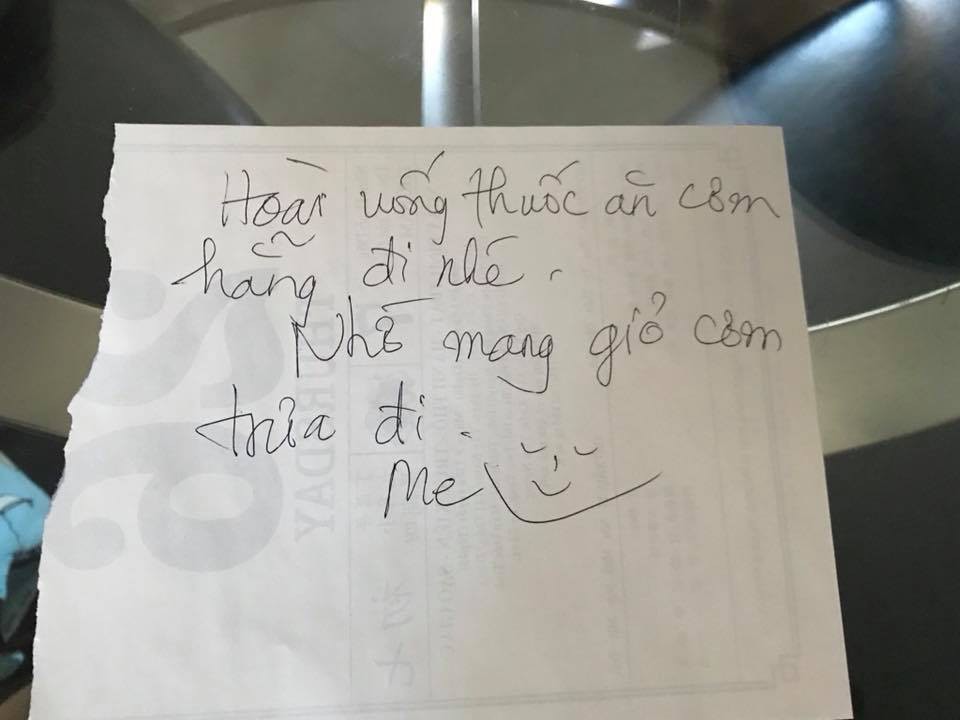 Hoài uống thuốc ăn cơm
hẵng đi nhé.
Nhớ mang giỏ cơm
trưa đi.
Mẹ